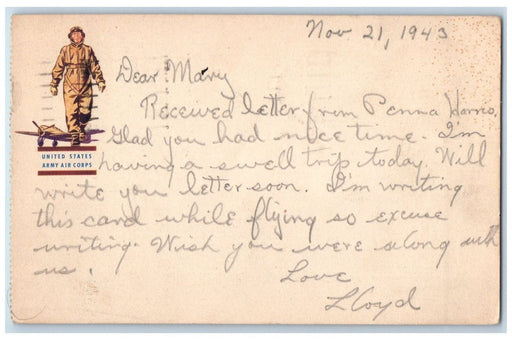 Nov 21, 1943
Dear Mary
Received letter from Penna
Glad you had nice time. I'm
having a swell trip today. Will
write you letter soon. I'm writing
this card while flying so excuse
writing. Wish you were along with
us.
Love
Lloyd
UNITED STATES
ARMY AIR CORPS